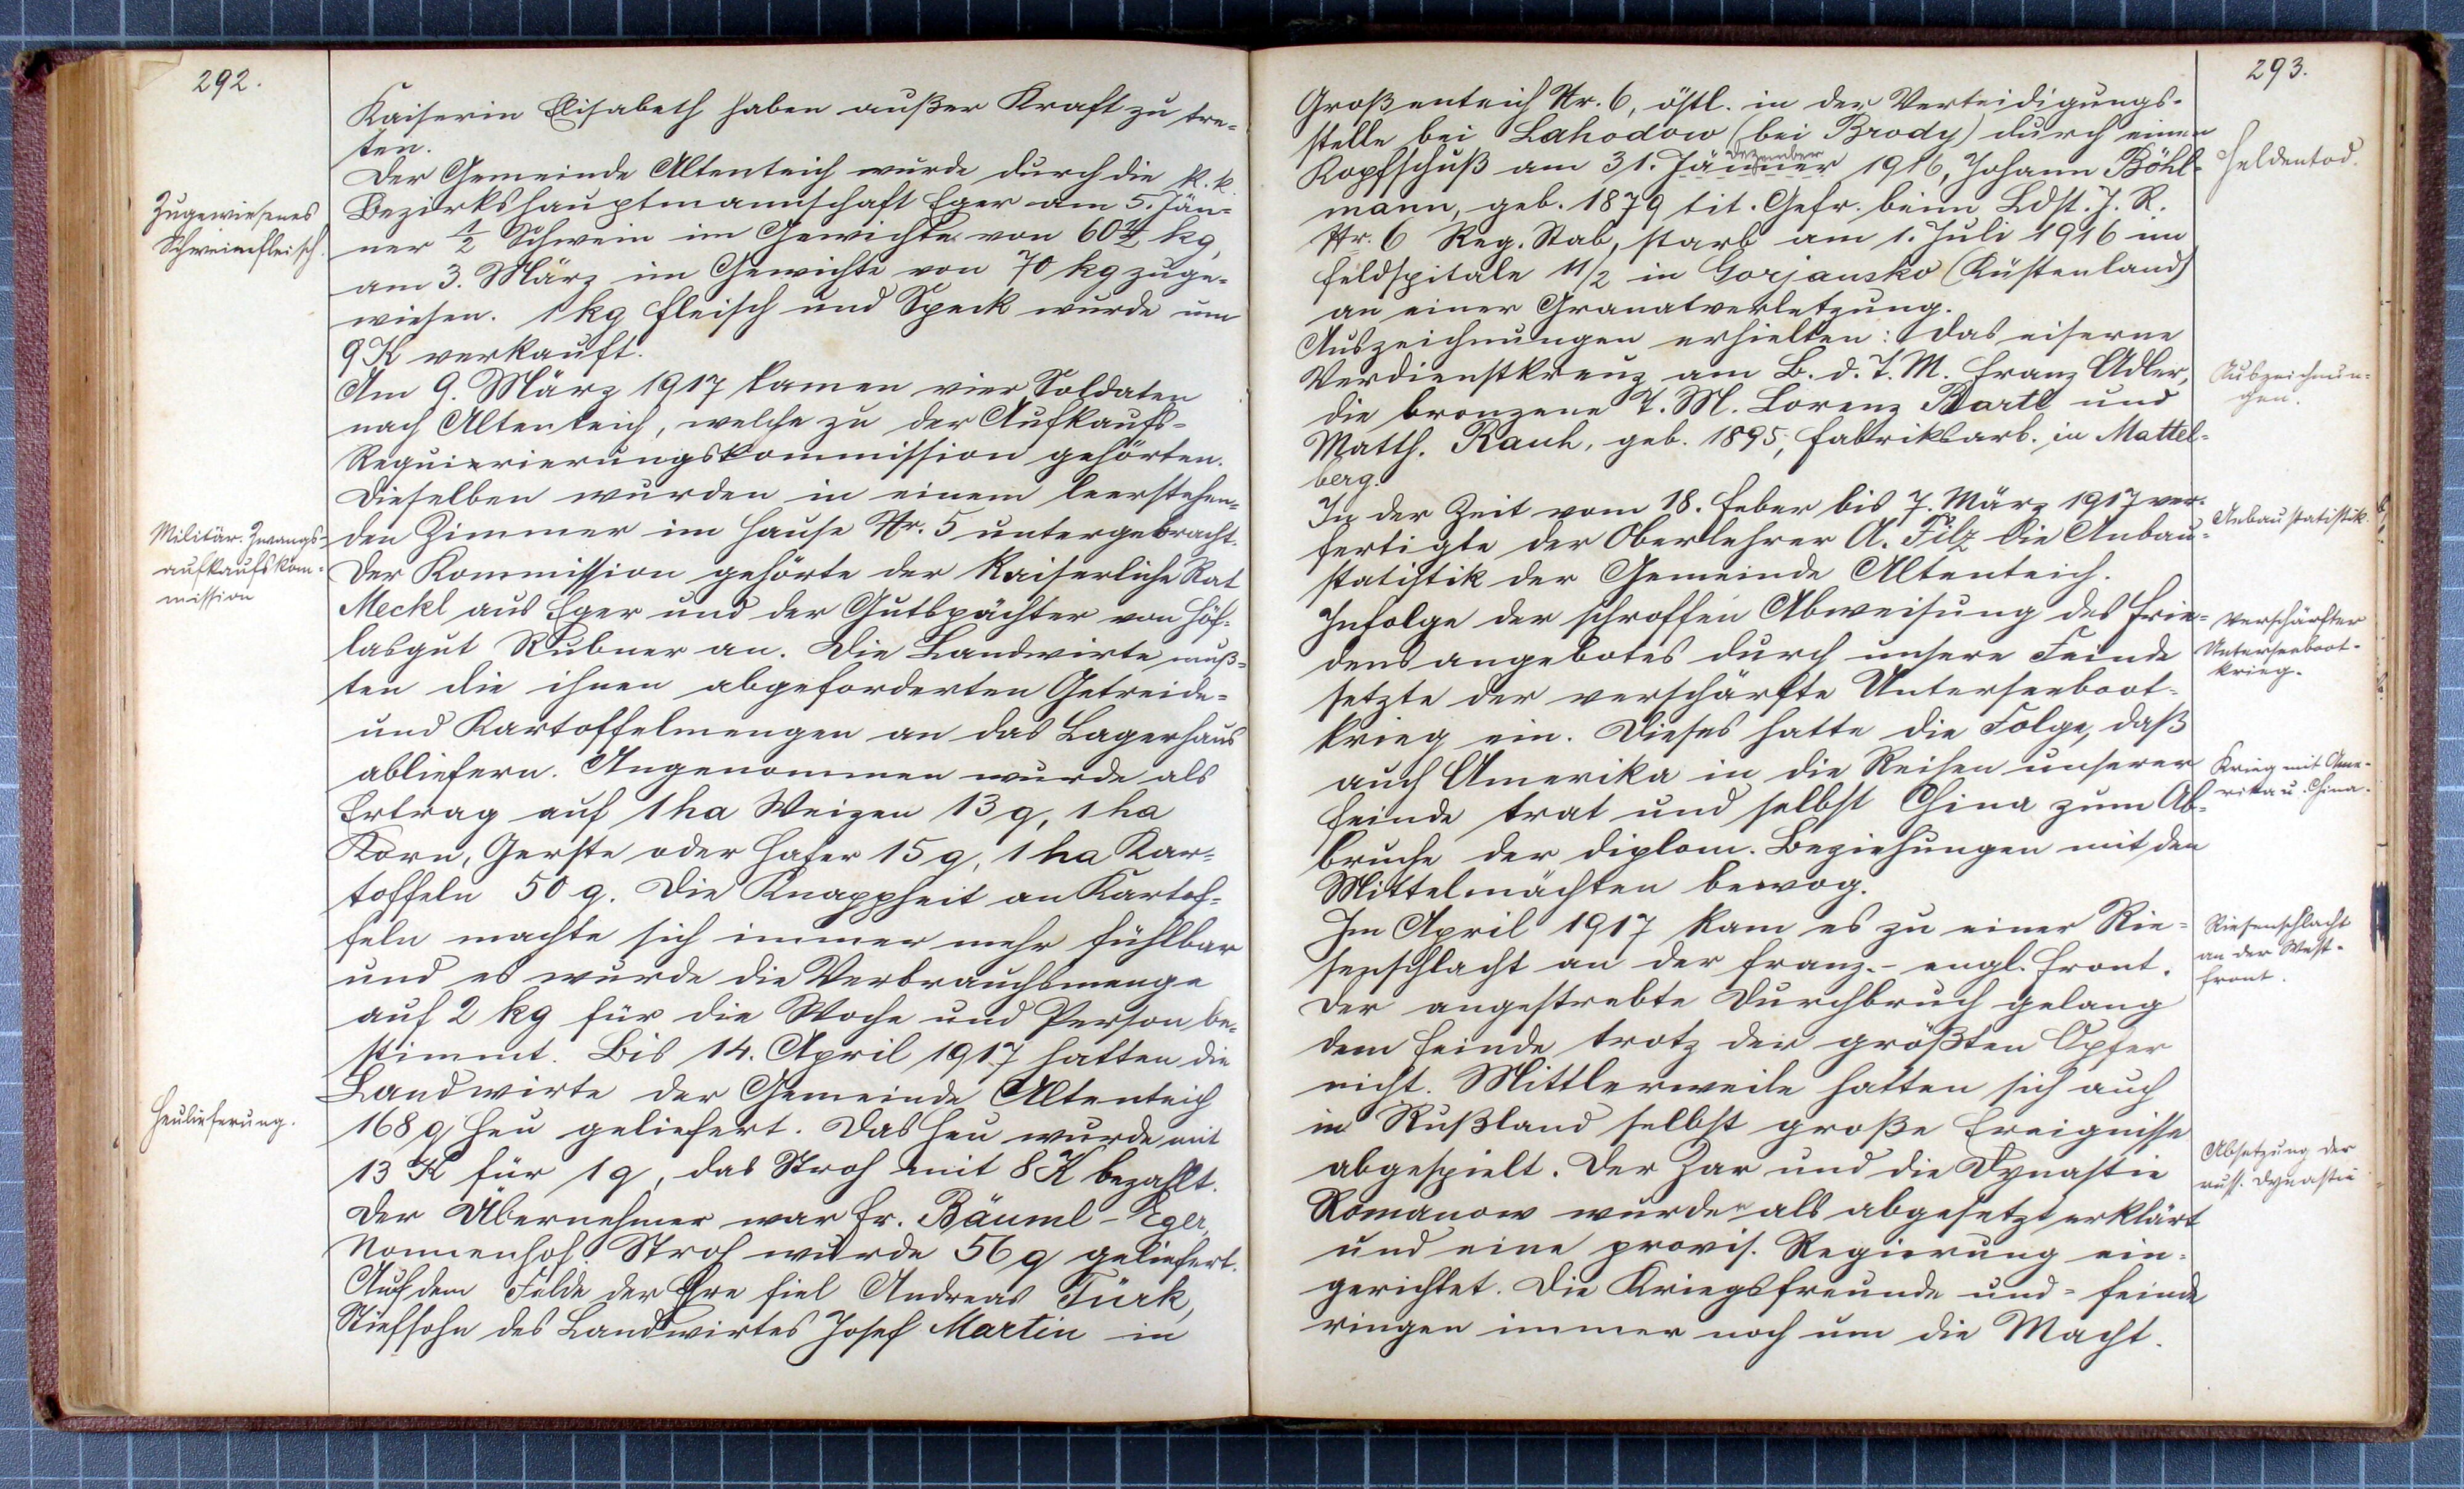 292.
Kaiserin Elisabeth haben außer Kraft zu tre-
ten.
Der Gemeinde Altenteich wurde durch die k. k.
Zugewiesenes
Schweinefleisch.
Bezirkshauptmannschaft Eger am 5. Jän-
ner ½ Schwein im Gewichte von 60 kg,
am 3. März im Gewichte von 70 kg zuge-
wiesen. 1 kg Fleisch und Speck wurde um
9 K verkauft.
Am 9. März 1917 kamen vier Soldaten
nach Altenteich, welche zu der Aufkaufs-
Requirierungskommission gehörten.
Dieselben wurden in einem leerstehen-
Militär. Zwangs-
aufkaufskom-
mission
den Zimmer im Hause Nr. 5 untergebracht.
Der Kommission gehörte der Kaiserliche Rat
Meckl aus Eger und der Gutspächter von Höf-
lasgut Rubner an. Die Landwirte muß-
ten die ihnen abgeforderten Getreide-
und Kartoffelmengen an das Lagerhaus
abliefern. Angenommen wurde als
Ertrag auf 1 ha Weizen 13 q, 1 ha
Korn, Gerste oder Hafer 15 q, 1 ha Kar-
toffeln 50 q. Die Knappheit an Kartof-
feln machte sich immer mehr fühlbar
und es wurde die Verbrauchsmenge
auf 2 kg für die Woche und Person be-
stimmt. Bis 14. April 1917 hatten die
Landwirte der Gemeinde Altenteich
Heulieferung.
168 q Heu geliefert. Das Heu wurde mit
13 K für 1 q, das Stroh mit 8 K bezahlt.
Der Übernehmer war Fr. Bäuml - Eger,
Nonnenhof. Stroh wurde 56 q geliefert.
Auf dem Felde der Ehre fiel Andreas Türk,
Stiefsohn des Landwirtes Josef Martin in
293.
Großenteich Nr. 6, östl. in der Verteidigungs-
stelle bei Lahodow (bei Brody) durch einen
Dezember
Kopfschuß am 31. Jänner 1916, Johann Böhl-
Heldentod.
mann, geb. 1879 tit. Gefr. beim Ldst. J. R.
Nr. 6 Reg. Stab, starb am 1. Juli 1916 im
Feldspitale 11/2 in Gorjansko (Küstenland)
an einer Granatverletzung.
Auszeichnungen erhielten: Das eiserne
Verdienstkreuz am B. d. T. M. Franz Adler,
Auszeichnun-
gen.
die bronzene T. M. Lorenz Bartl und
Matth. Rauh, geb. 1895, Fabriksarb. in Mattel-
berg.
In der Zeit vom 18. Feber bis 7. März 1917 ver-
Anbaustatistik.
fertigte der Oberlehrer A. Filz die Anbau-
statistik der Gemeinde Altenteich.
Infolge der schroffen Abweisung des Frie-
verschärfter
Unterseeboot-
krieg.
densangebotes durch unsere Feinde
setzte der verschärfte Unterseeboot-
krieg ein. Dieses hatte die Folge, daß
auch Amerika in die Reihen unserer
Krieg mit Ame-
rika u. China.
Feinde trat und selbst China zum Ab-
bruche der diplom. Beziehungen mit den
Mittelmächten bewog.
Im April 1917 kam es zu einer Rie-
Riesenschlacht
an der West-
front.
senschlacht an der franz.-engl. Front.
Der angestrebte Durchbruch gelang
dem Feinde trotz der größten Opfer
nicht. Mittlerweile hatten sich auch
in Rußland selbst große Ereignisse
Absetzung der
russ. Dynastie
abgespielt. Der Zar und die Dynastie
Romanow wurden als abgesetzt erklärt
und eine provis. Regierung ein-
gerichtet. Die Kriegsfreunde und -feinde
ringen immer noch um die Macht.